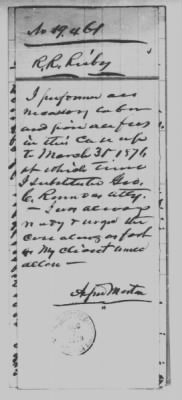 No 19.461
R. R. Rixby
I performed all
necessary labor
and paid all fees
in this case up
to March 31st 1876
at which time
I substituted Geo.
C. Round as atty.
— I was always
ready & urged the
case along as fast
as my client would
allow —
Alfred Morton